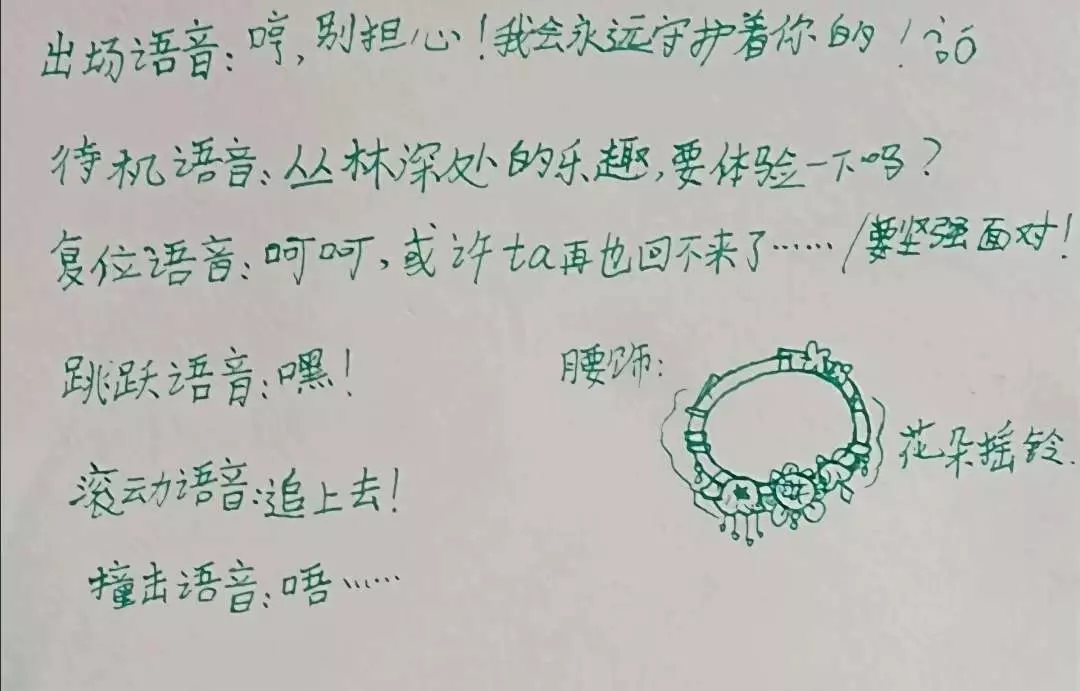 出场语音：哼，别担心！我会永远守护着你的！
待机语音：丛林深处的乐趣，要体验一下吗？
复位语音：呵呵，或许ta再也回不来了……/要坚强面对！
跳跃语音：嘿！
腰饰：
花朵摇铃.
滚动语音：追上去！
撞击语音：唔……